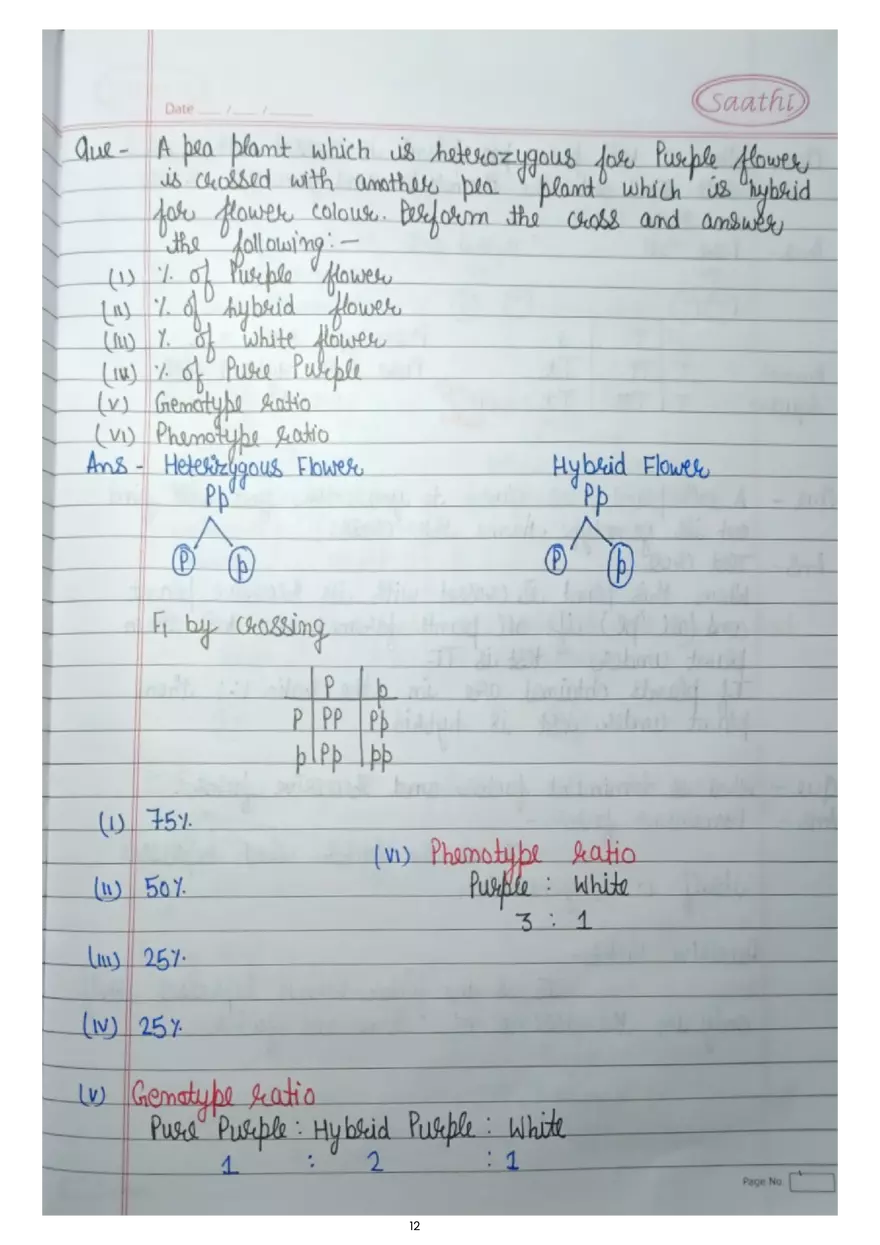 Saathi
Date ___/___/_____
Que - A pea plant which is heterozygous for Purple flower
is crossed with another pea plant which is hybrid
for flower colour. Perform the cross and answer
the following:-
(i) % of Purple flower
(ii) % of hybrid flower
(iii) % of white flower
(iv) % of Pure Purple
(v) Genotype ratio
(vi) Phenotype ratio
Ans - Heterizygous Flower Hybrid Flower
Pp Pp
P p P p
F1 by crossing
P p
P PP Pp
p Pp pp
(i) 75%.
(vi) Phenotype ratio
(ii) 50%. Purple : White
3 : 1
(iii) 25%.
(iv) 25%
(v) Genotype ratio
Pure Purple : Hybrid Purple : White
1 : 2 : 1
Page No.
12